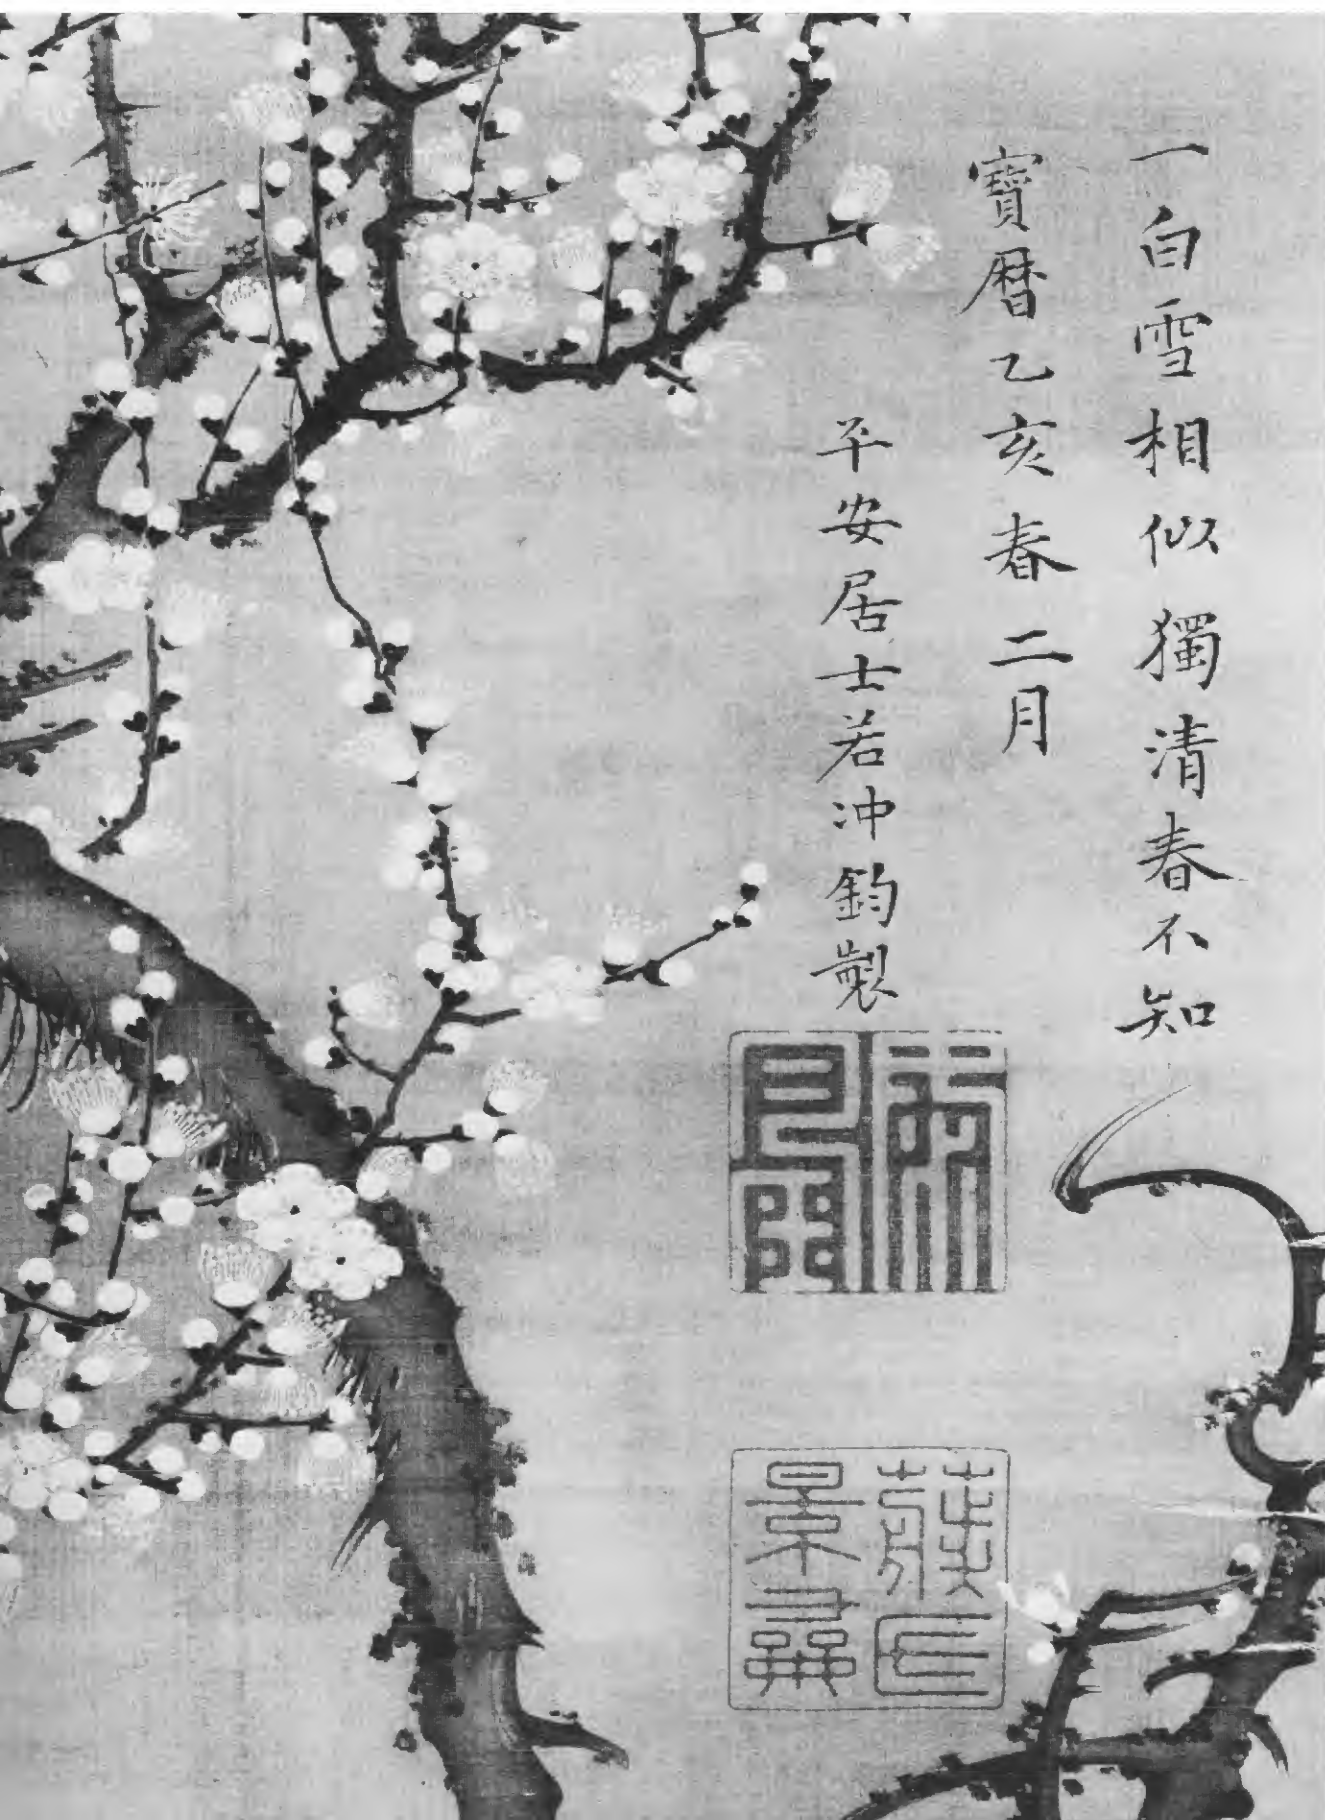 一白雪相似獨清春不知
寶暦乙亥春二月
平安居士若冲鈞製
藤氏景龢